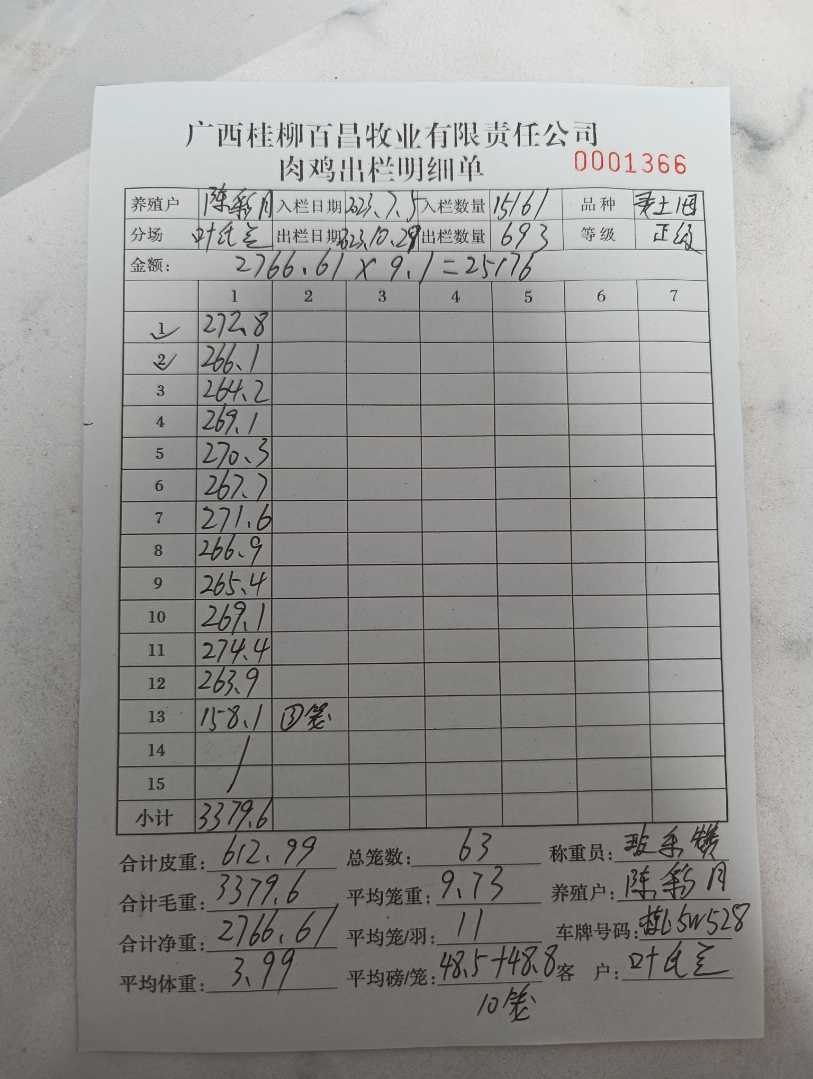 广西桂柳百昌牧业有限责任公司
肉鸡出栏明细单 0001366
养殖户 陈彩月 入栏日期 2023.7.5 入栏数量 15161 品种
分场 叶氏兰 出栏日期 2023.10.29 出栏数量 693 等级 正级
金额: 2766.61 x 9.1 = 25176
1 2 3 4 5 6 7
1 272.8
2 266.1
3 264.2
4 269.1
5 270.3
6 267.7
7 271.6
8 266.9
9 265.4
10 269.1
11 274.4
12 263.9
13 158.1 ③笼
14
15
小计 3379.6
合计皮重: 612.99 总笼数: 63 称重员:
合计毛重: 3379.6 平均笼重: 9.73 养殖户: 陈彩月
合计净重: 2766.61 平均笼/羽: 11 车牌号码: 桂L5W528
平均体重: 3.99 平均磅/笼: 48.5+48.8 客 户: 叶氏兰
10笼